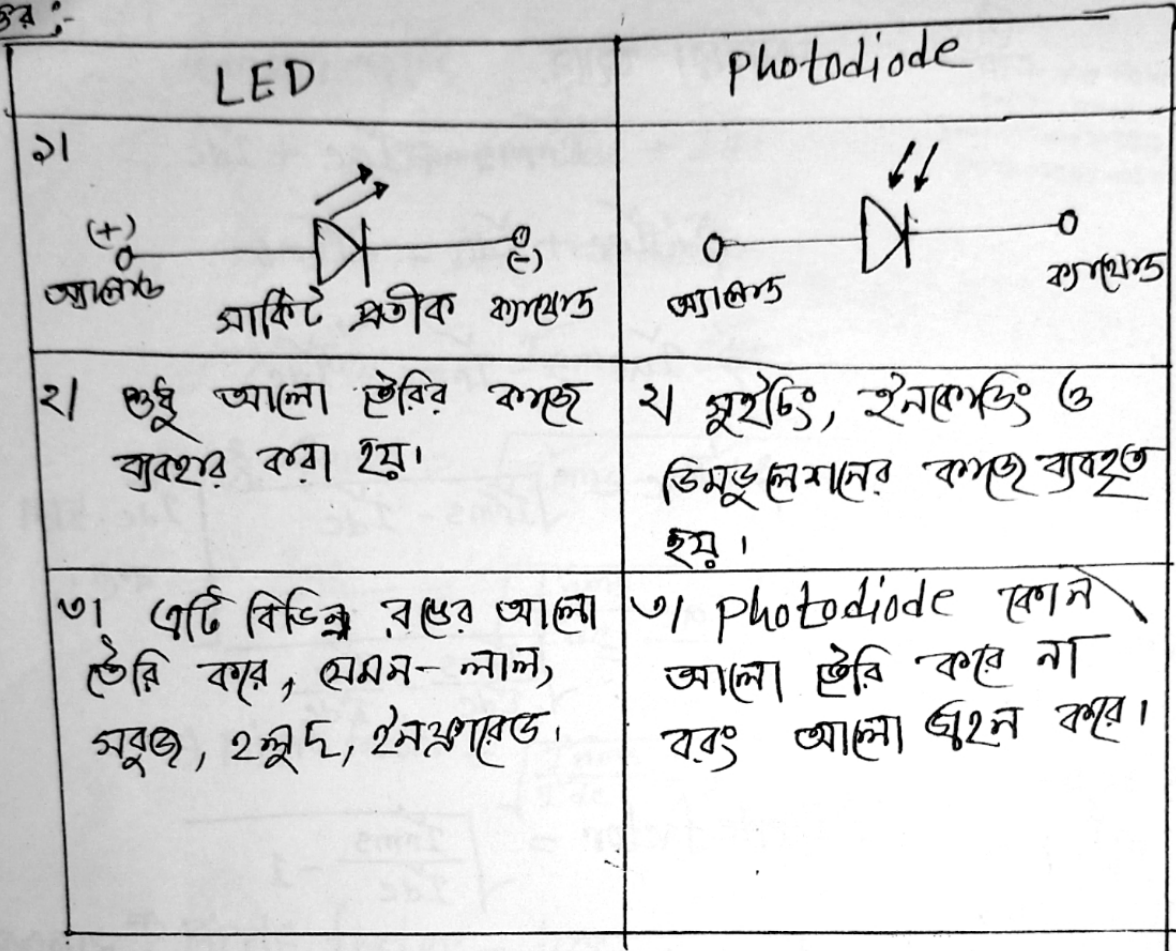 উত্তর :-
LED
photodiode
১।
(+)
অ্যানোড
সার্কিট প্রতীক
(-)
ক্যাথোড
অ্যানোড
ক্যাথোড
২। শুধু আলো তৈরির কাজে
ব্যবহার করা হয়।
২। সুইচিং, ইনকোডিং ও
ডিমডুলেশনের কাজে ব্যবহৃত
হয়।
৩। এটি বিভিন্ন রঙের আলো
তৈরি করে, যেমন- লাল,
সবুজ, হলুদ, ইনফ্রারেড।
৩। photodiode কোন
আলো তৈরি করে না
বরং আলো গ্রহন করে।